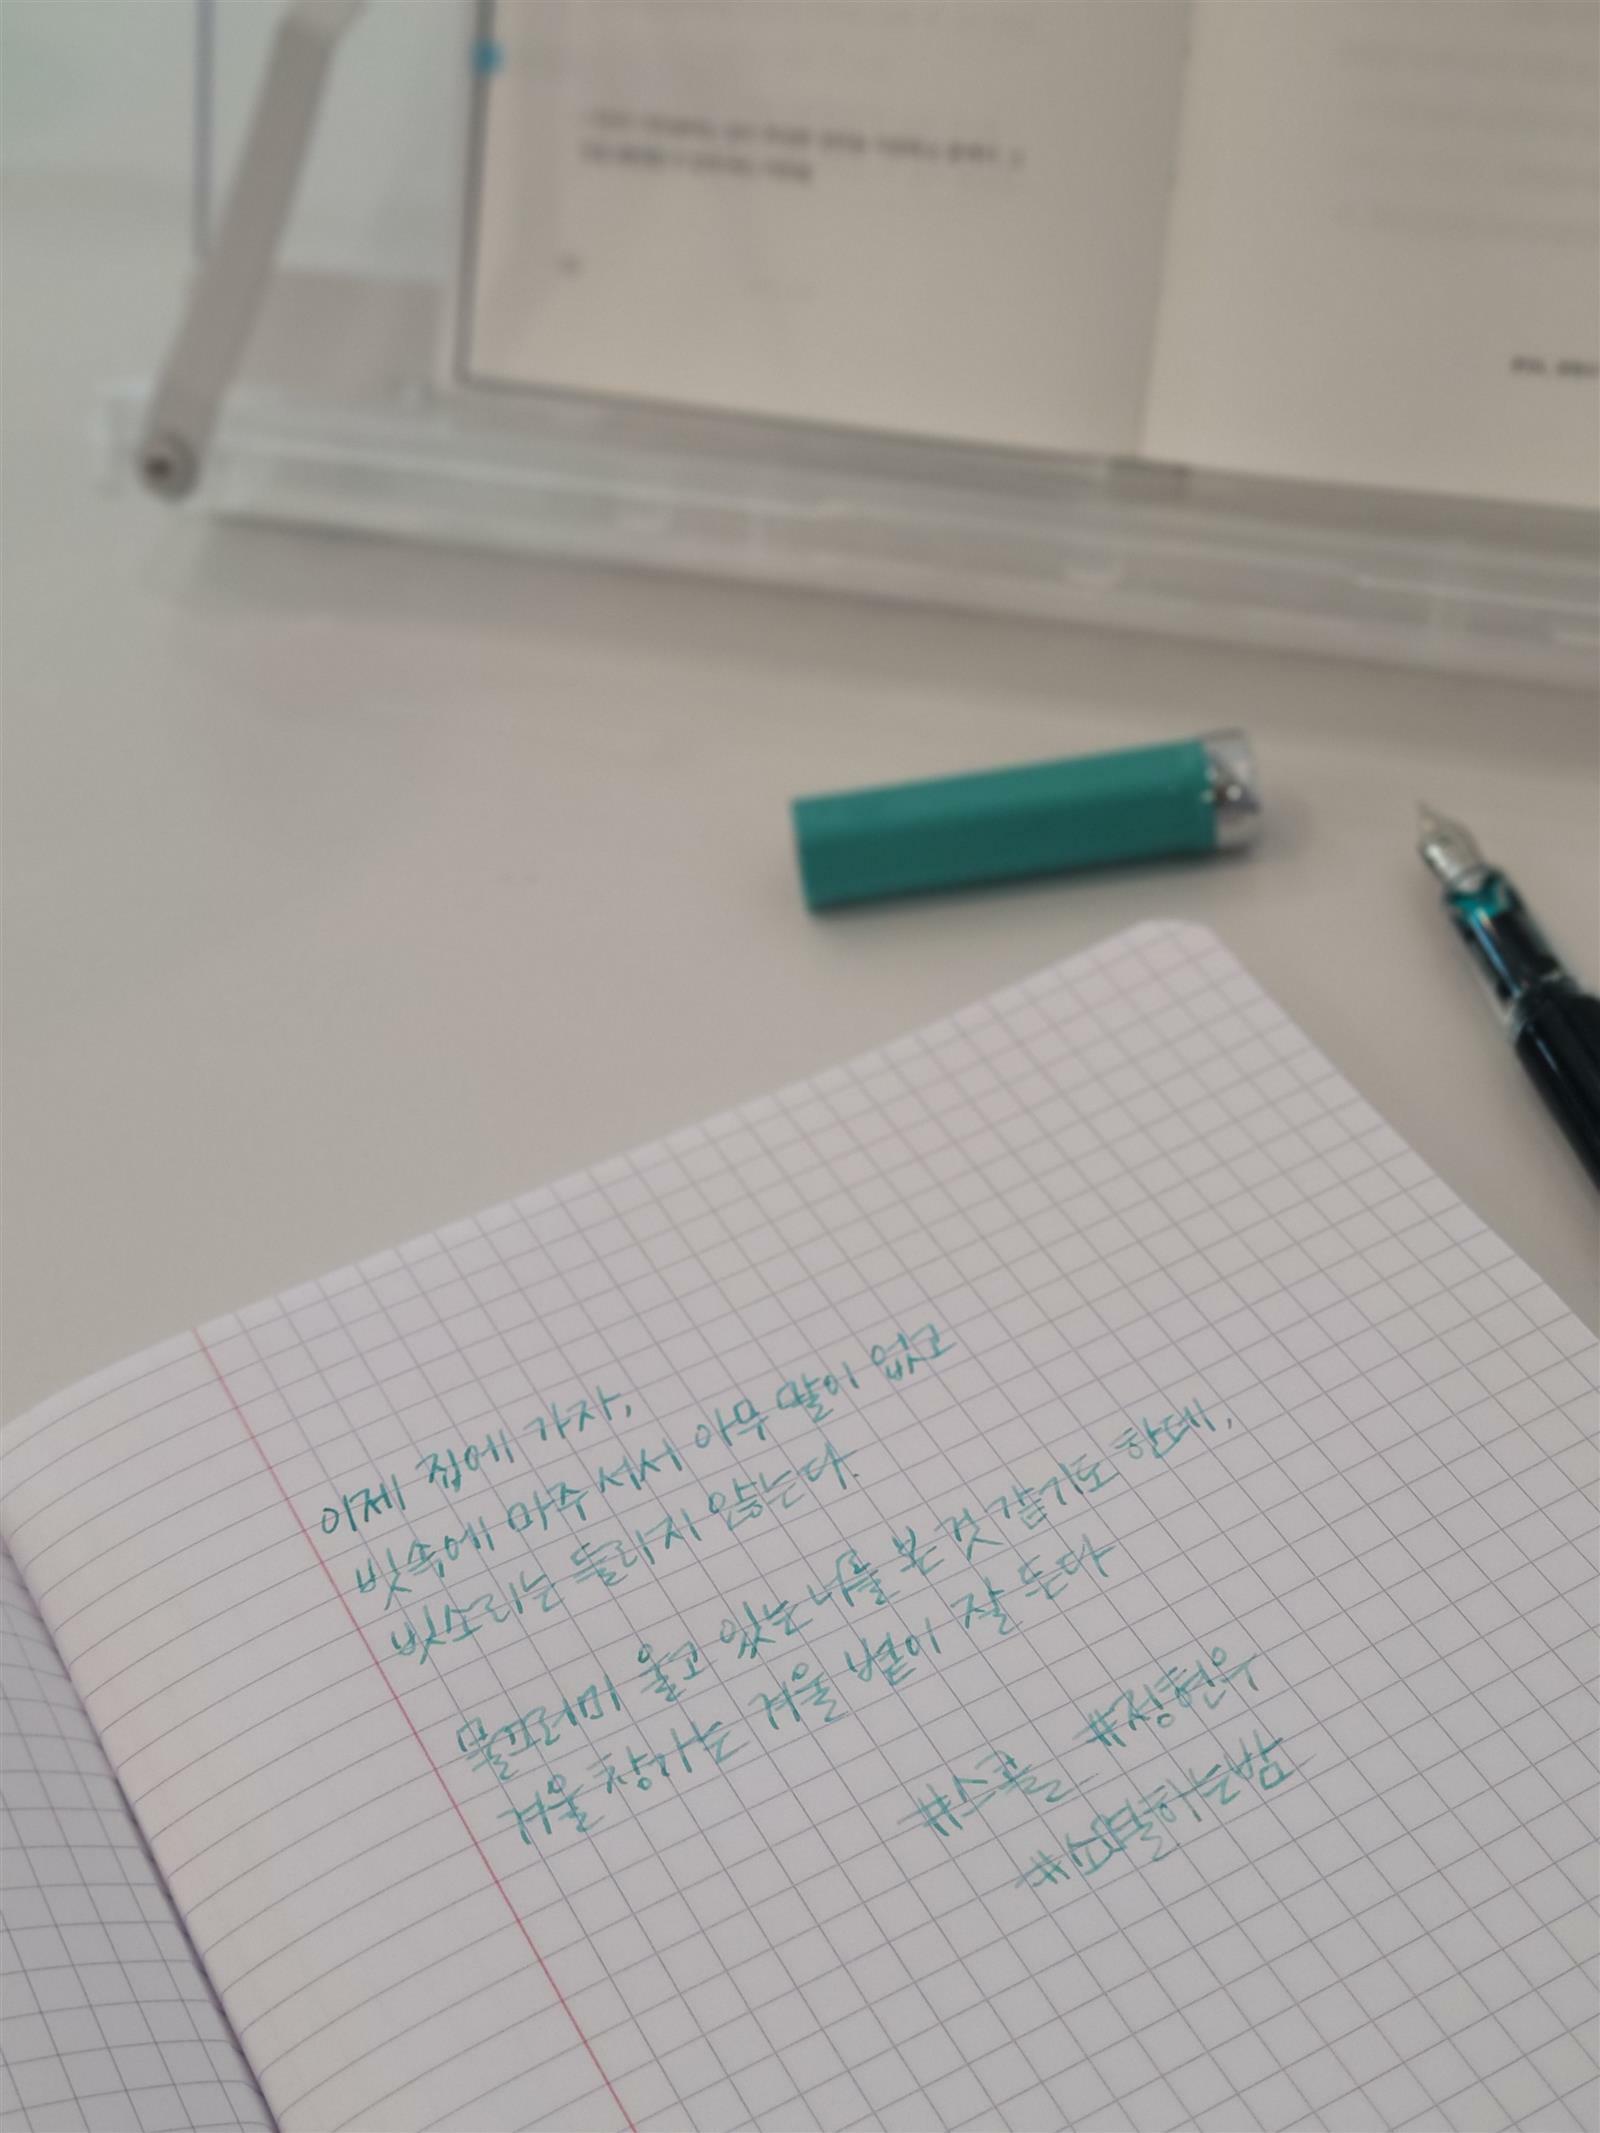 이제 집에 가자,
빗속에 마주 서서 아무 말이 없고
빗소리는 들리지 않는다.
물끄러미 울고 있는 너를 본 것 같기도 한데,
겨울 창가는 겨울 볕이 잘 든다
#스콜 #정현우
#소멸하는밤